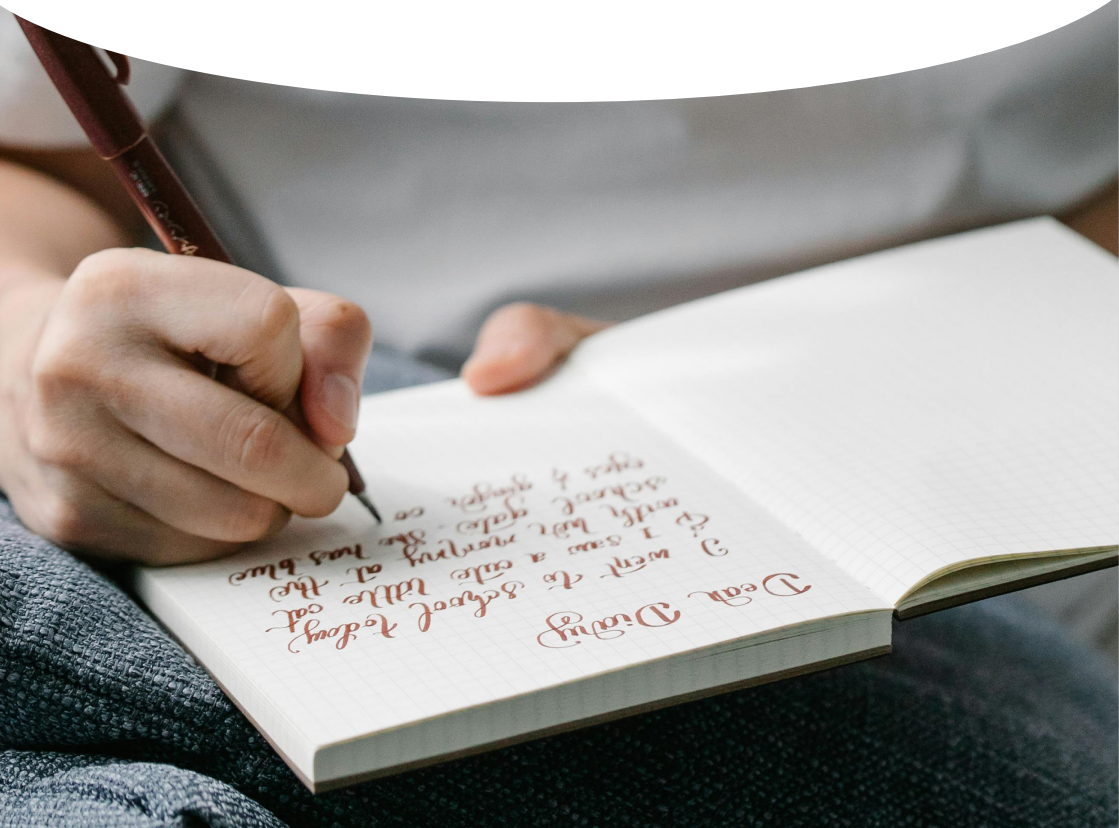 Dear Diary
I went to school today
& I saw a cute little cat
with her mommy at the
school gate. She has blue
eyes & ginger co